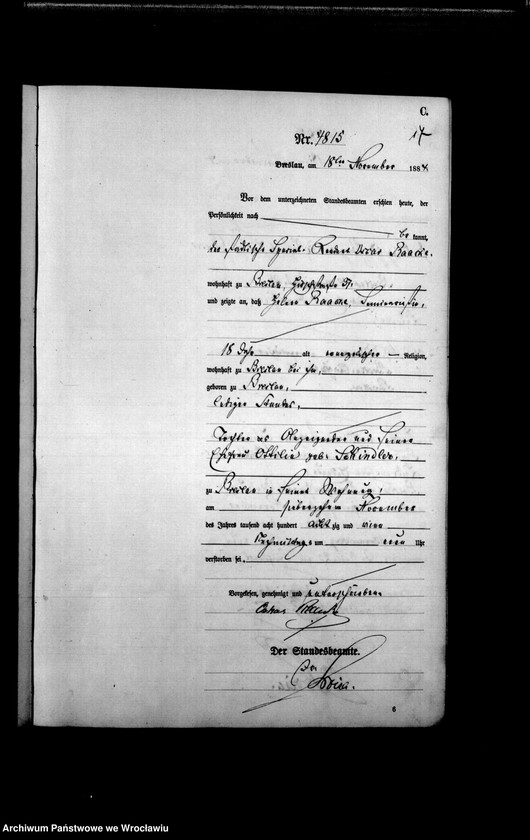 C.
17
Nr. 4815
Breslau, am 18ten November 1884
Vor dem unterzeichneten Standesbeamten erschien heute, der
Persönlichkeit nach
be kannt,
der städtische Spezial- Rendant Oscar Raacke,
wohnhaft zu Breslau, 51,
und zeigte an, daß Helene Raacke, Seminaristin,
18 Jahr alt evangelischer Religion,
wohnhaft zu Breslau bei ihm,
geboren zu Breslau,
ledigen Standes,
Tochter des Anzeigenden und seiner
Ehefrau Ottilie geb. Schindler,
zu Breslau in seiner Wohnung,
am siebzehnten November
des Jahres tausend acht hundert achtzig und vier
Nachmittags um neun Uhr
verstorben sei.
Vorgelesen, genehmigt und unterschrieben
Oskar Raacke
Der Standesbeamte.
6
Archiwum Państwowe we Wrocławiu